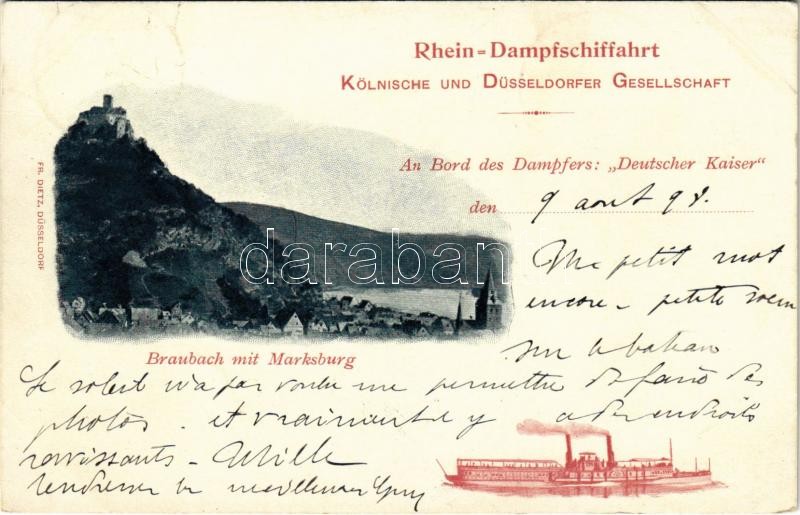 Rhein=Dampfschiffahrt
Kölnische und Düsseldorfer Gesellschaft
An Bord des Dampfers: „Deutscher Kaiser“
den 9 aout 98.
FR. DIETZ, DÜSSELDORF
darabanth
Un petit mot
encore - petite soeur
sur le bateau
Braubach mit Marksburg
Le soleil n'a pas voulu me permettre de faire des
photos. et vraiment il y a des endroits
ravissants -
tendresse